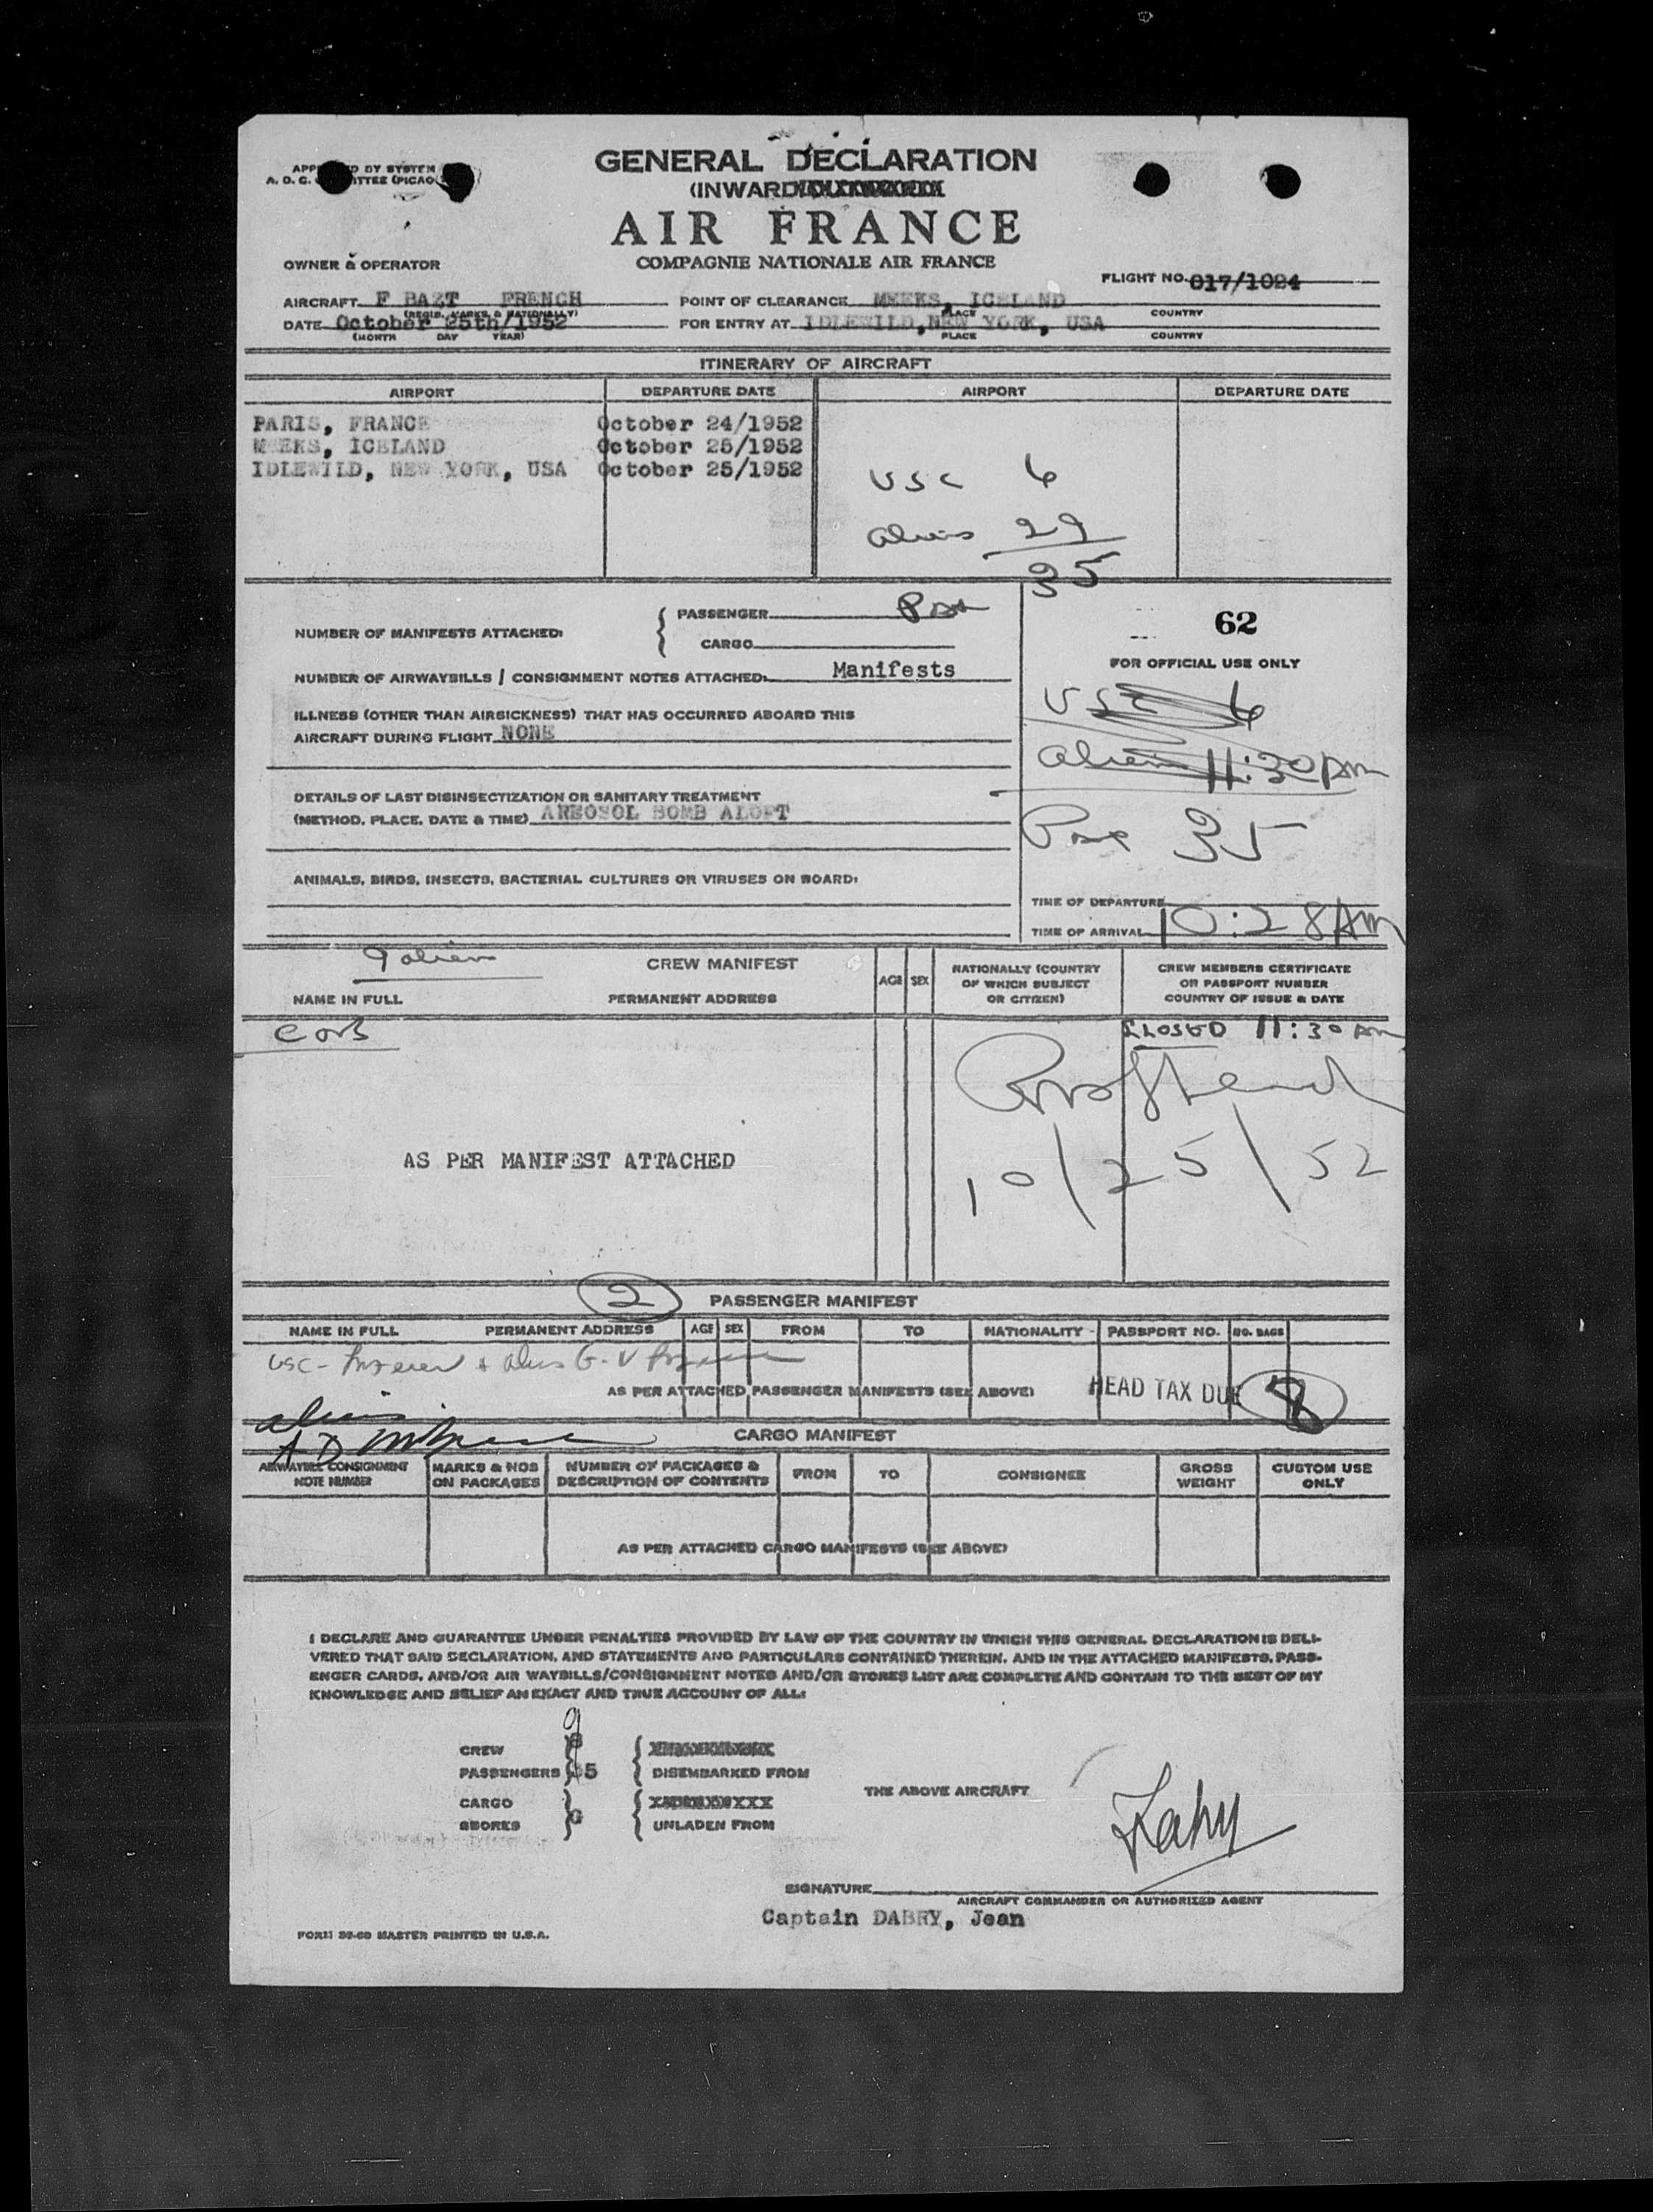 GENERAL DECLARATION
(INWARD
AIR FRANCE
COMPAGNIE NATIONALE AIR FRANCE
OWNER & OPERATOR
FLIGHT NO. 017/1024
AIRCRAFT F BAZT FRENCH
(REGIS. MARKS & NATIONALLY)
POINT OF CLEARANCE MEEKS, ICELAND
PLACE COUNTRY
DATE October 25th/1952
(MONTH DAY YEAR)
FOR ENTRY AT IDLEWILD, NEW YORK, USA
PLACE COUNTRY
ITINERARY OF AIRCRAFT
AIRPORT DEPARTURE DATE AIRPORT DEPARTURE DATE
PARIS, FRANCE October 24/1952
MEEKS, ICELAND October 25/1952
IDLEWILD, NEW YORK, USA October 25/1952
USC 6
aliens 29
35
NUMBER OF MANIFESTS ATTACHED:
PASSENGER
CARGO
NUMBER OF AIRWAYBILLS / CONSIGNMENT NOTES ATTACHED: Manifests
ILLNESS (OTHER THAN AIRSICKNESS) THAT HAS OCCURRED ABOARD THIS
AIRCRAFT DURING FLIGHT NONE
DETAILS OF LAST DISINSECTIZATION OR SANITARY TREATMENT
(METHOD, PLACE, DATE & TIME) AREOSOL BOMB ALOFT
ANIMALS, BIRDS, INSECTS, BACTERIAL CULTURES OR VIRUSES ON BOARD:
62
FOR OFFICIAL USE ONLY
USC 6
alien 11:30 AM
Pax 35
TIME OF DEPARTURE
TIME OF ARRIVAL 10:28 AM
9 alien
CREW MANIFEST
NAME IN FULL PERMANENT ADDRESS AGE SEX
NATIONALLY (COUNTRY
OF WHICH SUBJECT
OR CITIZEN)
CREW MEMBERS CERTIFICATE
OR PASSPORT NUMBER
COUNTRY OF ISSUE & DATE
CLOSED 11:30 AM
10/25/52
AS PER MANIFEST ATTACHED
2
PASSENGER MANIFEST
NAME IN FULL PERMANENT ADDRESS AGE SEX FROM TO NATIONALITY PASSPORT NO. NO. BAGS
USC
AS PER ATTACHED PASSENGER MANIFESTS (SEE ABOVE)
HEAD TAX DUE 8
aliens
CARGO MANIFEST
AIRWAYBILL CONSIGNMENT
NOTE NUMBER
MARKS & NOS
ON PACKAGES
NUMBER OF PACKAGES &
DESCRIPTION OF CONTENTS
FROM TO CONSIGNEE
GROSS
WEIGHT
CUSTOM USE
ONLY
AS PER ATTACHED CARGO MANIFESTS (SEE ABOVE)
I DECLARE AND GUARANTEE UNDER PENALTIES PROVIDED BY LAW OF THE COUNTRY IN WHICH THIS GENERAL DECLARATION IS DELI-
VERED THAT SAID DECLARATION, AND STATEMENTS AND PARTICULARS CONTAINED THEREIN, AND IN THE ATTACHED MANIFESTS, PASS-
ENGER CARDS, AND/OR AIR WAYBILLS/CONSIGNMENT NOTES AND/OR STORES LIST ARE COMPLETE AND CONTAIN TO THE BEST OF MY
KNOWLEDGE AND BELIEF AN EXACT AND TRUE ACCOUNT OF ALL:
9
CREW
PASSENGERS 35 DISEMBARKED FROM
CARGO
STORES UNLADEN FROM
THE ABOVE AIRCRAFT
SIGNATURE
AIRCRAFT COMMANDER OR AUTHORIZED AGENT
Captain DABRY, Jean
FORM 50-60 MASTER PRINTED IN U.S.A.